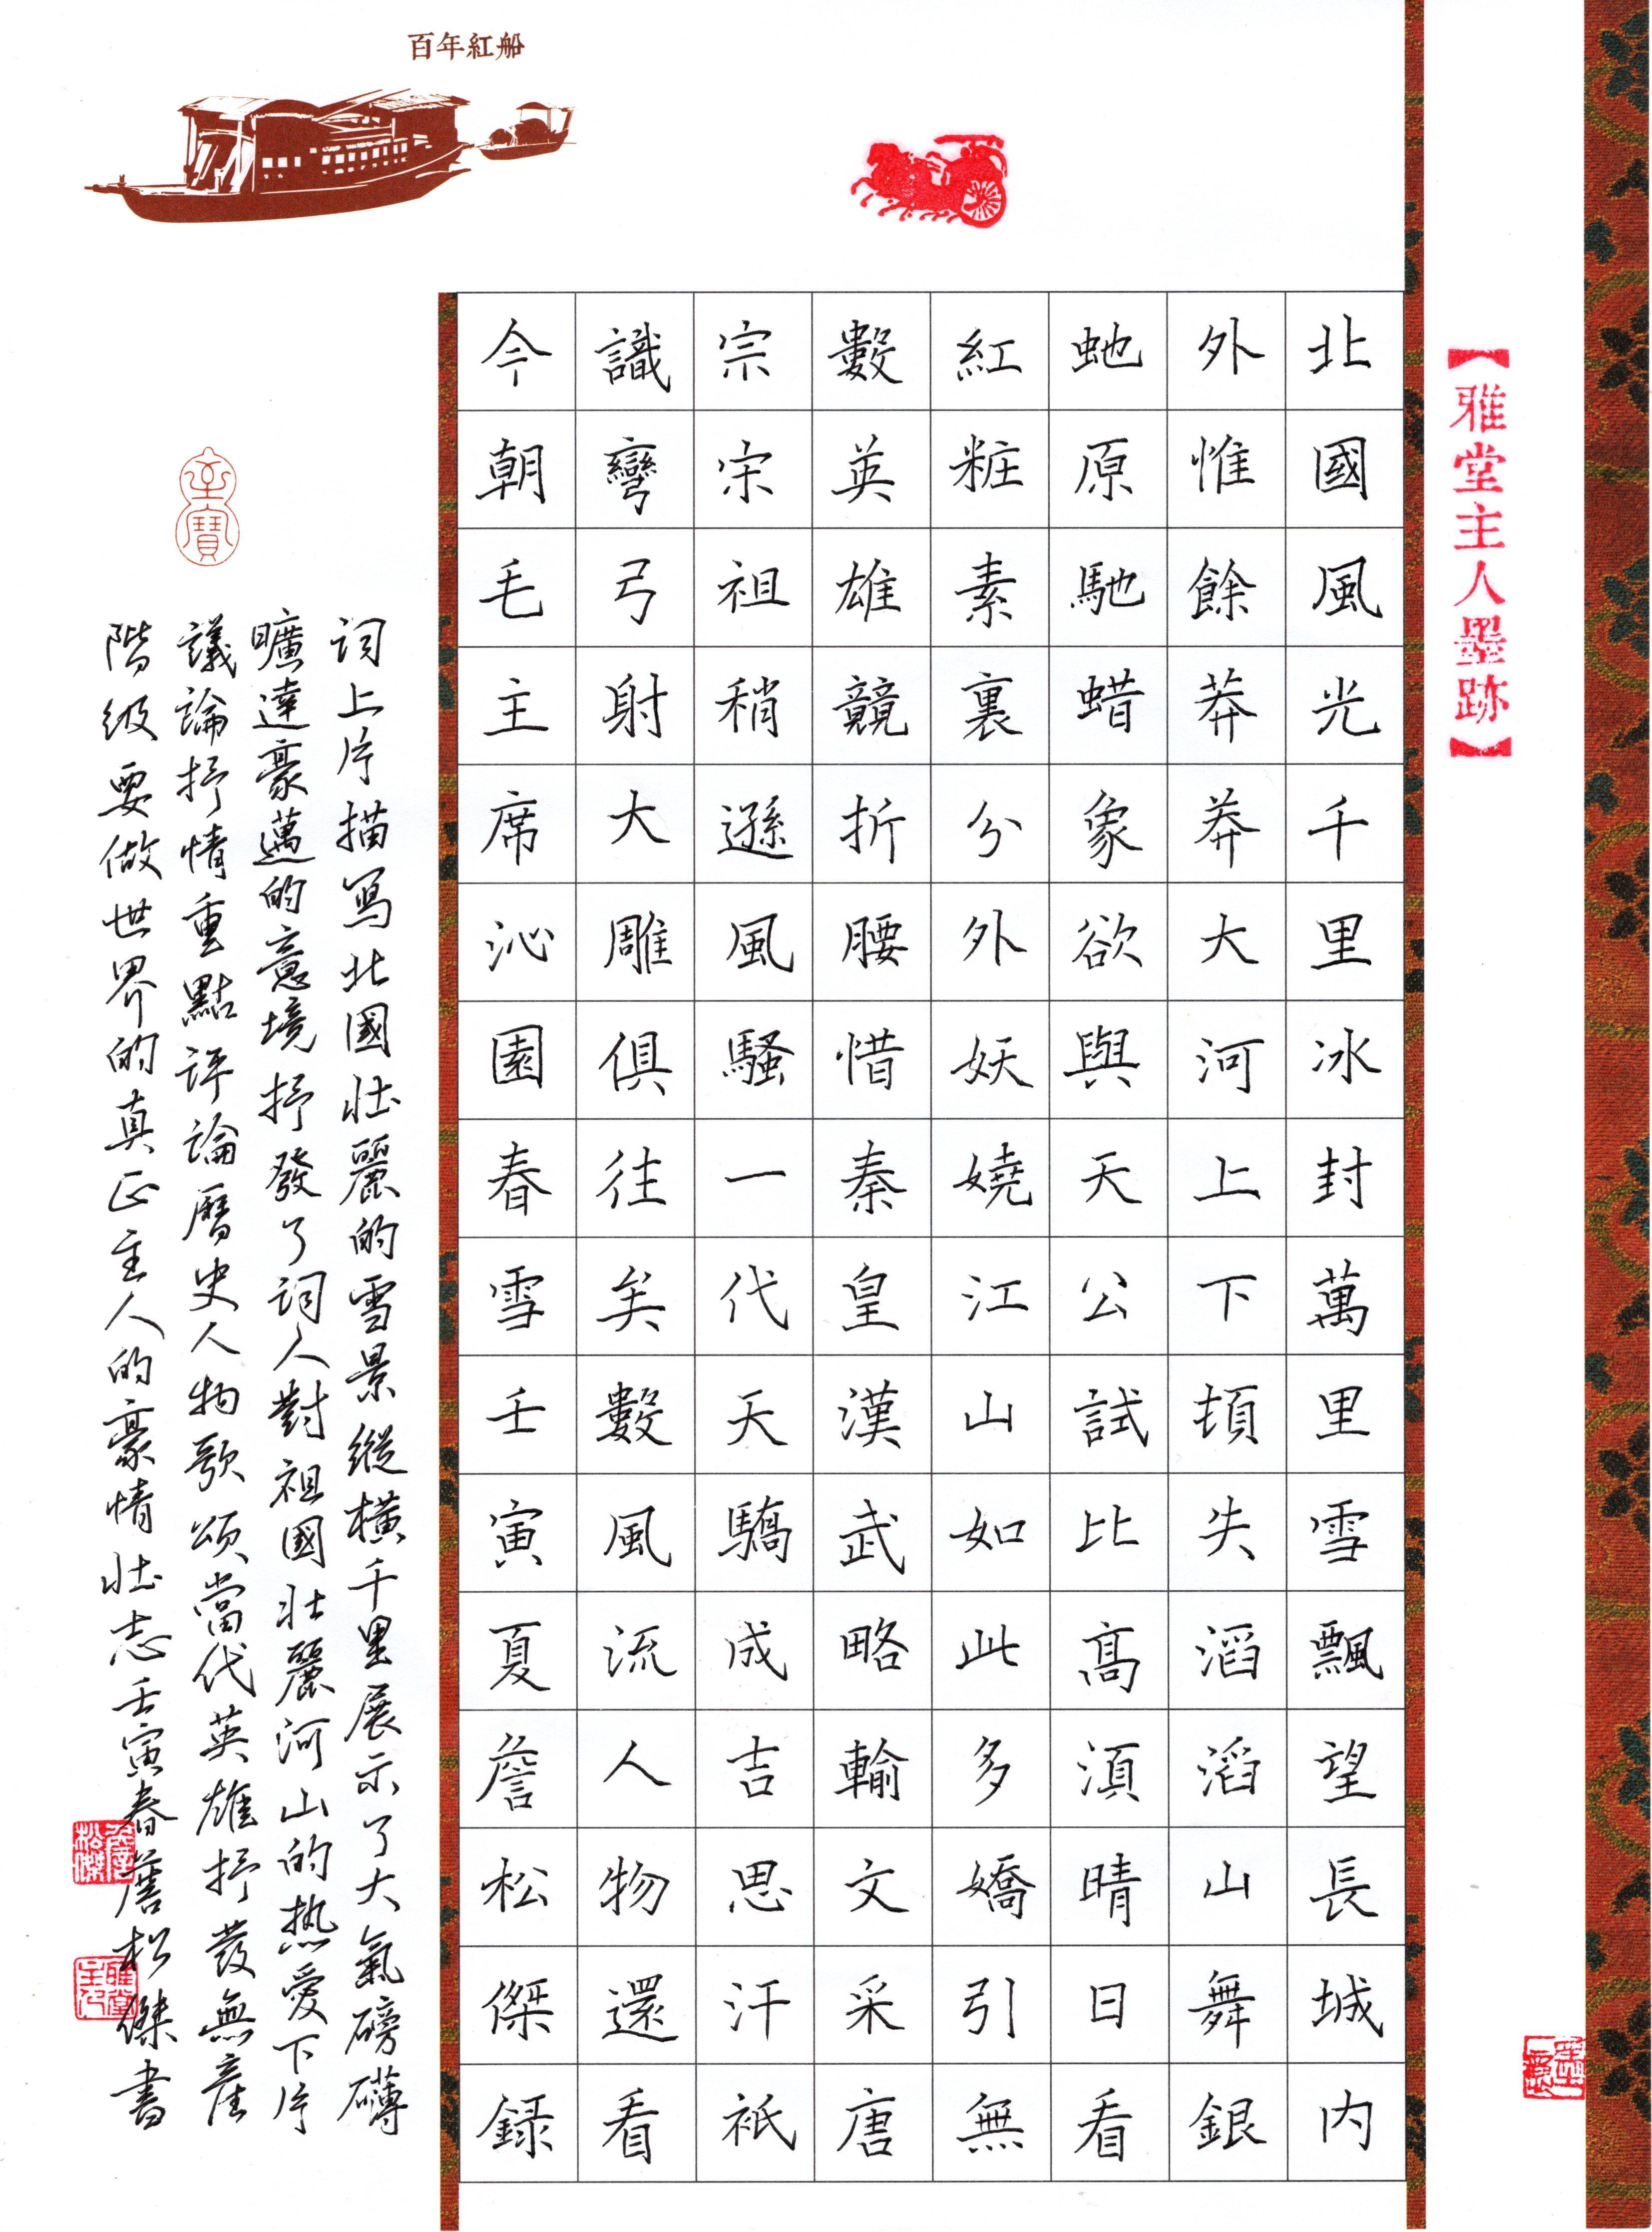 百年紅船
【雅堂主人墨跡】
北國風光千里冰封萬里雪飄望長城內
外惟餘莽莽大河上下頓失滔滔山舞銀
虵原馳蜡象欲與天公試比高須晴日看
紅粧素裹分外妖嬈江山如此多嬌引無
數英雄競折腰惜秦皇漢武略輸文采唐
宗宋祖稍遜風騷一代天驕成吉思汗祇
識彎弓射大雕俱往矣數風流人物還看
今朝毛主席沁園春雪壬寅夏詹松傑録
詞上片描寫北國壯麗的雪景縱橫千里展示了大氣磅礴
曠達豪邁的意境抒發了詞人對祖國壯麗河山的热愛下片
議論抒情重點評論曆史人物歌頌當代英雄抒發無產
階级要做世界的真正主人的豪情壯志壬寅春詹松傑書